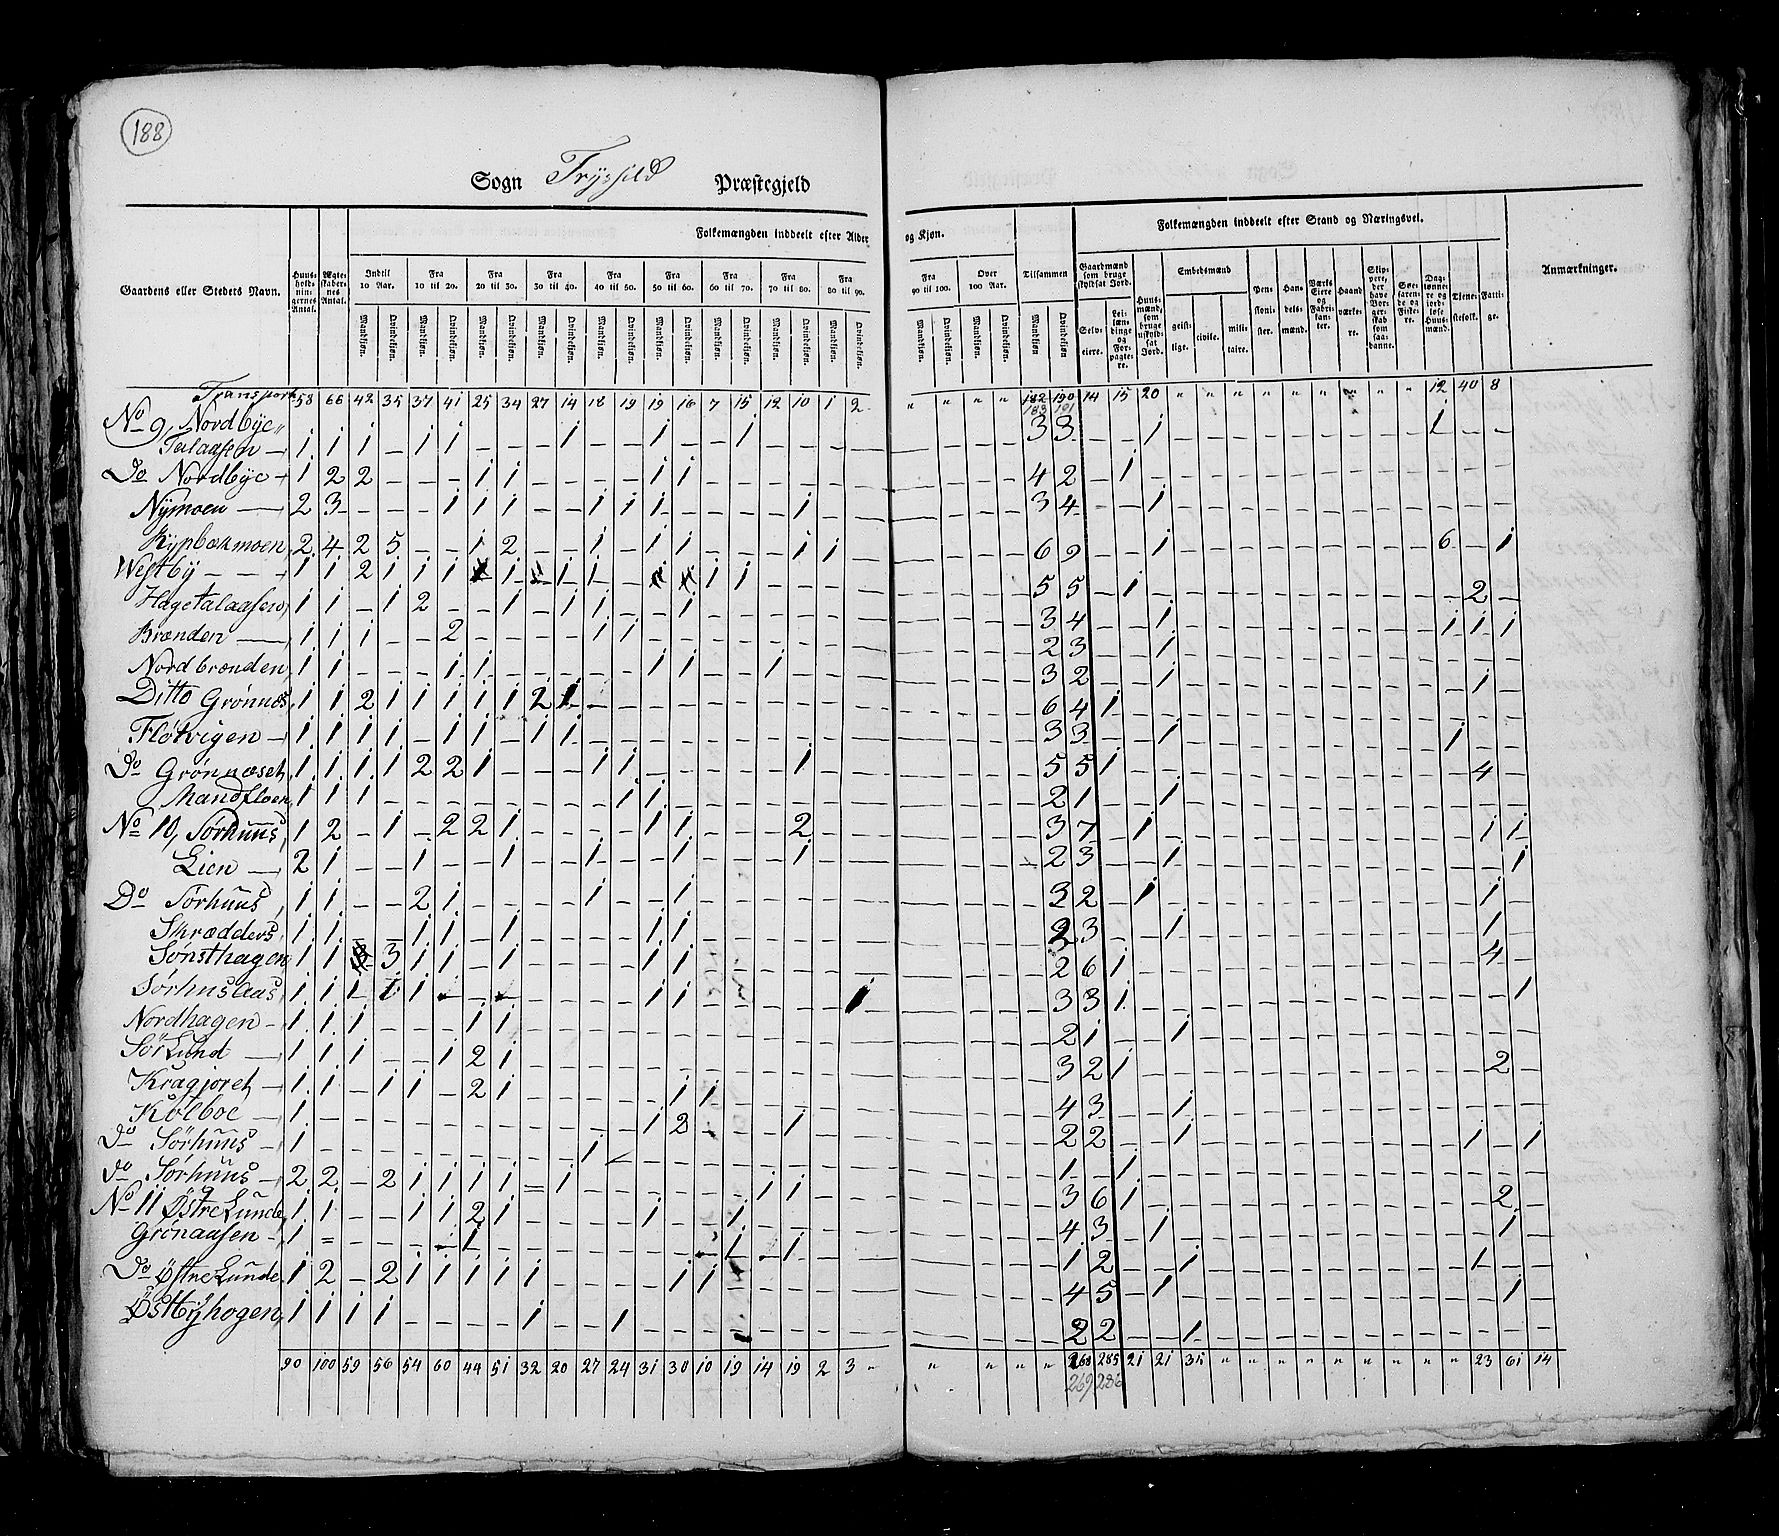 188
Sogn Trysild Præstegjeld
Folkemængden inddeelt efter Alder og Kjøn. Folkemængden inddeelt efter Stand og Næringsvei.
Gaardens eller Stedets Navn. Huus-holdnin-gernes Antal. Ægte-skabernes Antal. Indtil 10 Aar. Fra 10 til 20. Fra 20 til 30. Fra 30 til 40. Fra 40 til 50. Fra 50 til 60. Fra 60 til 70. Fra 70 til 80. Fra 80 til 90. Fra 90 til 100. Over 100 Aar. Tilsammen Gaardmænd som bruge skyldsat Jord. Embedsmænd Anmærkninger.
Mandkjøn. Qvindekjøn. Selv-eiere. Lei-lændinge og For-pagte-re. Huus-mænd, som bruge uskyldsat Jord. geist-lige. civile. mili-taire. Pen-sioni-ster. Han-dels-mænd. Værks Eiere og Fabri-kan-ter. Haand-værke-re. Tjene-stefolk. Fatti-ge.
Transport 58 66 42 35 37 41 25 34 27 14 18 19 19 16 7 15 12 10 1 2 " " " " 182 190 14 15 20 " " " " " " " " " " 12 40 8
183 191
No 9, Nordbye"
Talaasen 1 1 1 - 1 1 - - - 1 - - 1 - - 1 - - - - 3 3 - - 1 1 - -
Do Nordbye 1 2 2 - - - 1 1 - - - - 1 1 - - - - - - 4 2 - 1
Nymoen 2 3 - - - 1 1 1 - - 1 1 1 - - - - 1 - - 3 4 - - 1
Rypbækmoen 2 4 2 5 - - 1 2 - - 1 - 1 1 - - - 1 1 - 6 9 - - 1 6 - 1
Westby 1 1 2 1 1 1 5 5 - 1 - 2 -
Hagetalaasen 1 1 - 1 2 - - 1 - 1 1 - - 1 - - - - - - 3 4 - - 1 1 1 1
Brænden 1 1 1 - - 2 - - - - 1 1 - - - - - - - - 2 3 - - 1
Nordbrænden 1 1 - - - 1 1 - - - - - 1 1 - - 1 - - - 3 2 - - 1 - 1 -
Ditto Grønnæs 1 1 2 1 1 1 1 1 2 1 - - - - - - - - - - 6 4 1 - -
Fløtvigen 1 1 1 1 - 1 1 - 1 1 - - - - - - - - - - 3 3 - - 1 1 - -
Do Grønnæset 1 1 1 1 2 2 1 - - - 1 1 - - - - - 1 - - 5 5 1 - - - 4 -
Mandfloen 1 1 1 - - - - - - - - 1 1 - - - - - - - 2 1 - - 1
No 10, Sørhuus, 1 2 - 1 - 2 2 1 - - - - 1 1 - - - 2 - - 3 7 - 1 - - 1 1
Lien 2 1 - - 1 - - 1 - - 1 - - 1 - - - 1 - - 2 3 - - 1 - - 1
Do Sørhuus, 1 1 - - 2 1 - - - - 1 - - 1 - - - - - - 3 2 - 1 - - 1 -
Skrædders, 1 1 - - 1 1 - 1 - - - - 1 1 - - - - - - 2 3 - - 1 - 1 -
Sønsthagen 1 1 3 1 1 - 1 - - - - 1 1 - - - - - - 2 6 1 - - - 4 -
Sørhusaas, 1 1 1 1 1 1 1 1 3 3 1 - - - - 1
Nordhagen 1 1 1 - - - 1 1 - - - - - - - - - - - - 2 1 - - 1
Sør Lund 1 1 1 - - 1 2 1 - - - - - - - - - - - - 3 2 1 - - - 2 -
Kragjoret 1 1 - 1 1 - 2 1 - - - - - 1 1 - - - - - 4 3 - - 1
Kølboe 1 - - - - - - - - - - - 1 2 - - - 1 - - 2 2 - - 1 1 - 1
Do Sørhuus 1 - - - - - - - - - 1 - - - - - - - - - 1 - 1
Do Sørhuus 2 2 - 2 1 1 1 1 - 1 - - - - - - 1 1 - - 3 6 1 - - - 2 -
No 11 Østre Lunde, 1 1 - - 1 1 2 1 - - - - 1 - - 1 - - - - 4 3 - 1 - - 1 -
Grønaasen 1 1 2 - - 1 1 - -
Do Østre Lunde 1 2 - 2 1 1 1 1 1 - - - - 1 1 - - - - - 4 5 - 1 - - 1 -
Østbyhogen, 1 1 1 1 - - - - 1 - - 1 - - - - - - - - 2 2 - - 1
90 100 59 56 54 60 44 51 32 20 27 24 31 30 10 19 14 19 2 3 " " " " 268 285 21 21 35 " " " " " " " " " " 23 61 14
269 286